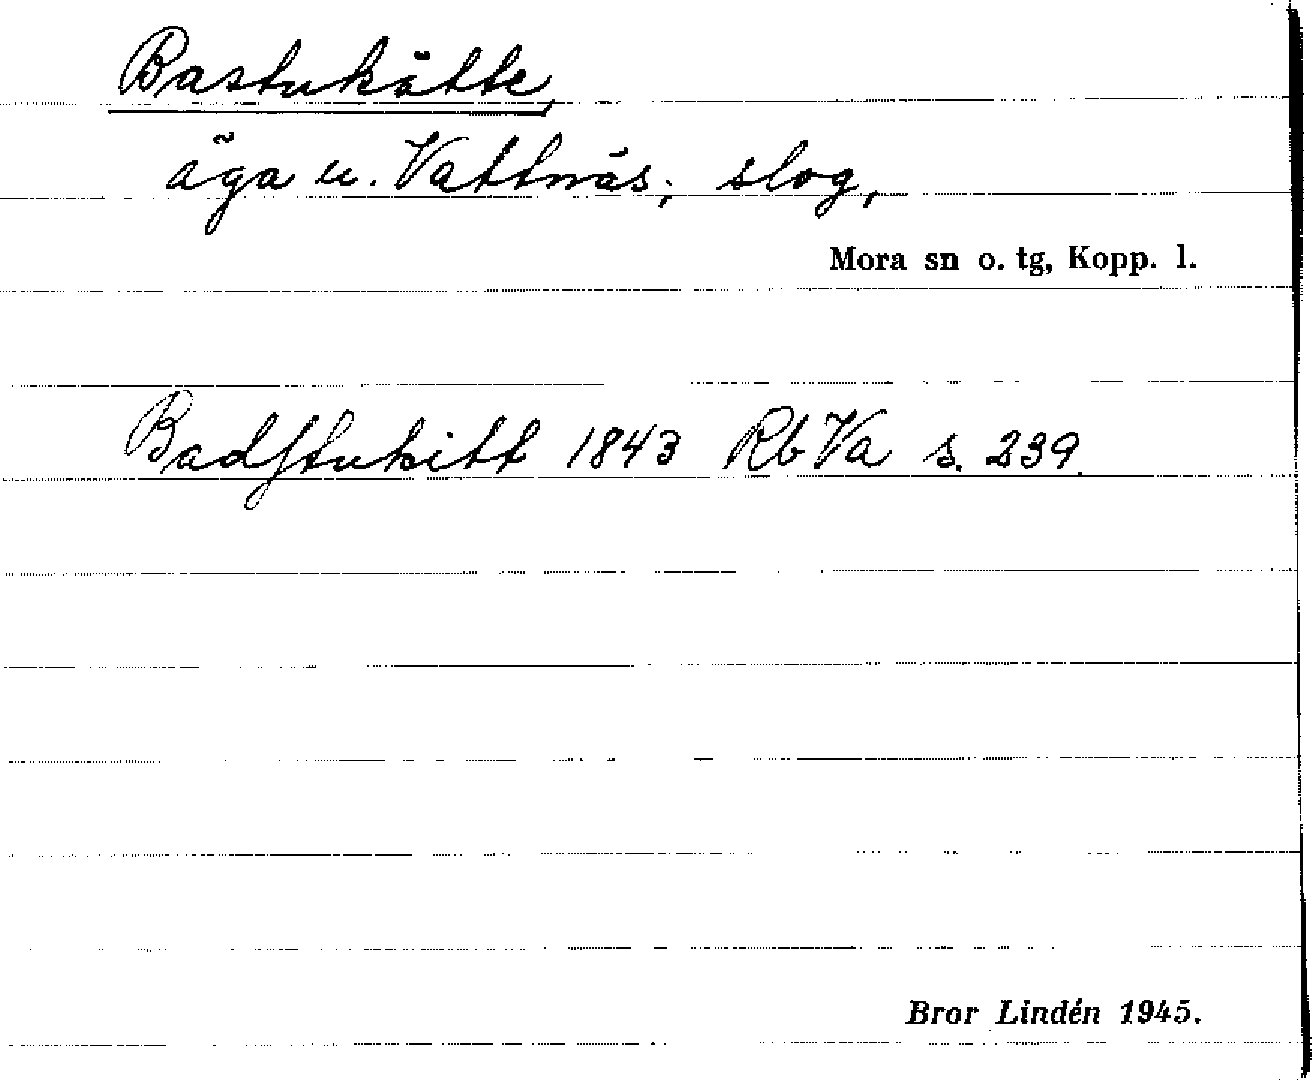 Bastukätte,
äga u. Vattnäs; slog,
Mora sn o. tg, Kopp. l.
Badstukitt 1843 Rb Va s. 239.
Bror Lindén 1945.